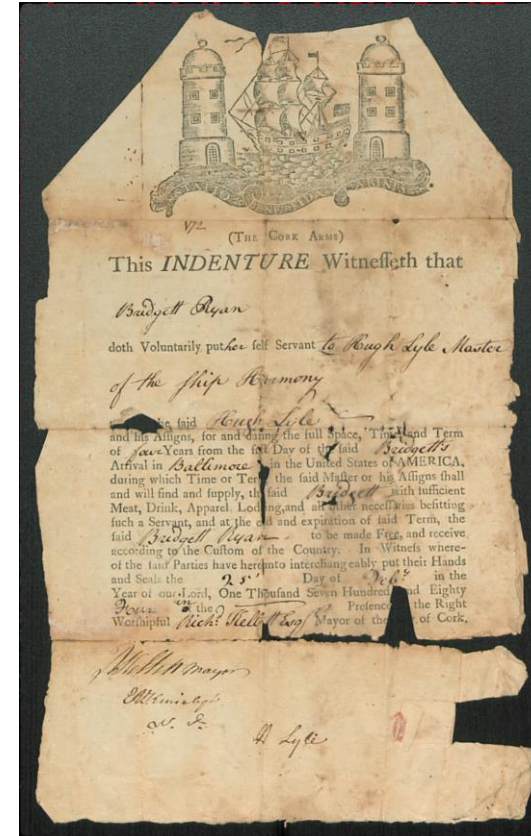 STATIO BENE FIDE CARINIS
(THE CORK ARMS)
This INDENTURE Witneſſeth that
Bridgett Ryan
doth Voluntarily put her ſelf Servant to Hugh Lyle Master
of the ſhip Harmony
he ſaid Hugh Lyle
and his Aſſigns, for and during the full Space, Time and Term
of four Years from the firſt Day of the ſaid Bridgett's
Arrival in Baltimore in the United States of AMERICA,
during which Time or Term the ſaid Maſter or his Aſſigns ſhall
and will find and ſupply, the ſaid Bridgett with ſufficient
Meat, Drink, Apparel Lodging, and all other neceſſaries befitting
ſuch a Servant, and at the end and expiration of ſaid Term, the
ſaid Bridgett Ryan to be made Free, and receive
according to the Cuſtom of the Country. In Witneſs where-
of the ſaid Parties have hereunto interchangeably put their Hands
and Seals the 25 Day of Feb.y in the
Year of our Lord, One Thouſand Seven Hundred and Eighty
Four in the Preſence the Right
Worſhipful Rich.d Kellett Esq Mayor of the of Cork.
Kellett mayor
H Lyle